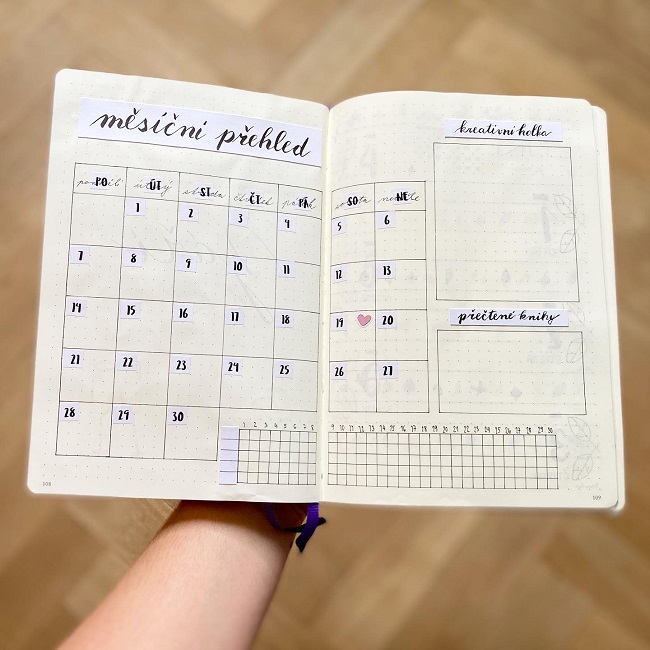 měsíční přehled
kreativní holka
PO ÚT ST ČT PÁ SO NE
1 2 3 4 5 6
7 8 9 10 11 12 13
14 15 16 17 18 19 20
21 22 23 24 25 26 27
28 29 30
přečtené knihy
1 2 3 4 5 6 7 8 9 10 11 12 13 14 15 16 17 18 19 20 21 22 23 24 25 26 27 28 29 30
108 109